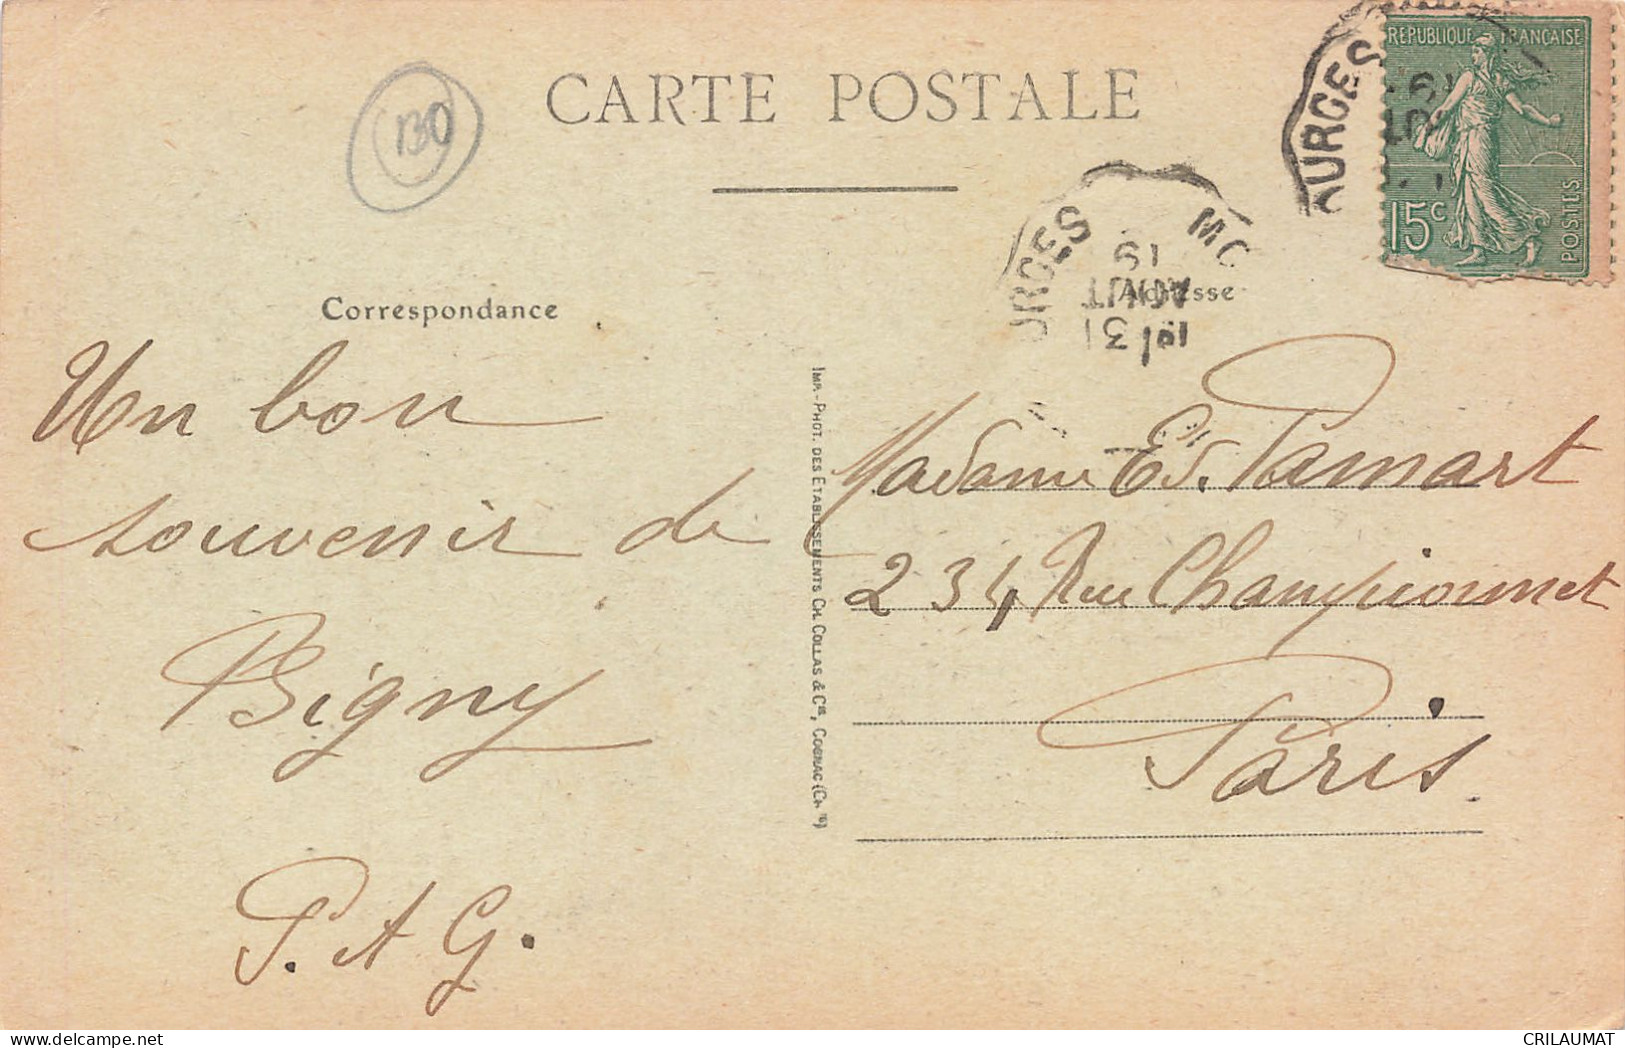 CARTE POSTALE
130
RÉPUBLIQUE FRANÇAISE
15c
POSTES
URGES
URGES MO
19
AOUT
31
Correspondance
Adresse
Un bon
souvenir de
Bigny
P. A G.
IMP.-PHOT. DES ETABLISSEMENTS CH. COLLAS & Cie, COGNAC (Ch te)
Madame Ed. Pamart
234 Rue Championnet
Paris.
CRILAUMAT